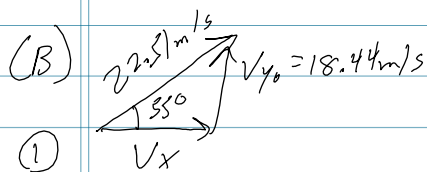 (B) 22.51 m/s
V_y₀ = 18.44 m/s
55°
① V_x